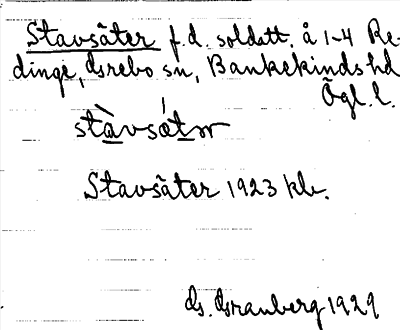 Stavsäter f.d. soldatt. å 1-4 Re-
dinge, Grebo sn, Bankekinds hd
Ögl. l.
stàvsétər
Stavsäter 1923 kb.
G. Granberg 1929